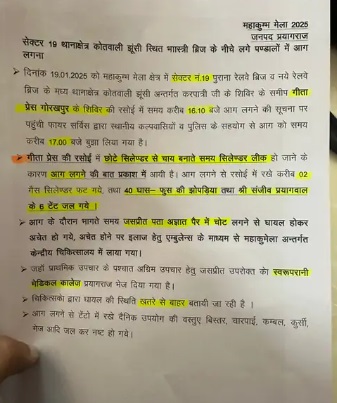 महाकुम्भ मेला 2025
जनपद प्रयागराज
सेक्टर 19 थानाक्षेत्र कोतवाली झूंसी स्थित शास्त्री ब्रिज के नीचे लगे पण्डालों में आग
लगना
➢ दिनांक 19.01.2025 को महाकुम्भ मेला क्षेत्र में सेक्टर नं.19 पुराना रेलवे ब्रिज व नये रेलवे
ब्रिज के मध्य थानाक्षेत्र कोतवाली झूंसी अन्तर्गत करपात्री जी के शिविर के समीप गीता
प्रेस गोरखपुर के शिविर की रसोई में समय करीब 16.10 बजे आग लगने की सूचना पर
पहुंची फायर सर्विस द्वारा स्थानीय कल्पवासियों व पुलिस के सहयोग से आग को समय
करीब 17.00 बजे बुझा लिया गया है।
➢ गीता प्रेस की रसोई में छोटे सिलेण्डर से चाय बनाते समय सिलेण्डर लीक हो जाने के
कारण आग लगने की बात प्रकाश में आयी है। आग लगने से रसोई में रखे करीब 02
गैस सिलेण्डर फट गये, तथा 40 घास- फूस की झोपडिया तथा श्री संजीव प्रयागवाल
के 6 टेंट जल गये ।
➢ आग के दौरान भागते समय जसप्रीत पता अज्ञात पैर में चोट लगने से घायल होकर
अचेत हो गये, अचेत होने पर इलाज हेतु एम्बुलेन्स के माध्यम से महाकुम्भ मेला अन्तर्गत
केन्द्रीय चिकित्सालय में लाया गया।
➢ जहां प्राथमिक उपचार के पश्चात अग्रिम उपचार हेतु जसप्रीत उपरोक्त को स्वरूपरानी
मेडिकल कालेज प्रयागराज भेज दिया गया है।
➢ चिकित्सको द्वारा घायल की स्थिति खतरे से बाहर बतायी जा रही है ।
➢ आग लगने से टेंटो में रखे दैनिक उपयोग की वस्तुए बिस्तर, चारपाई, कम्बल, कुर्सी,
मेज आदि जल कर नष्ट हो गये।